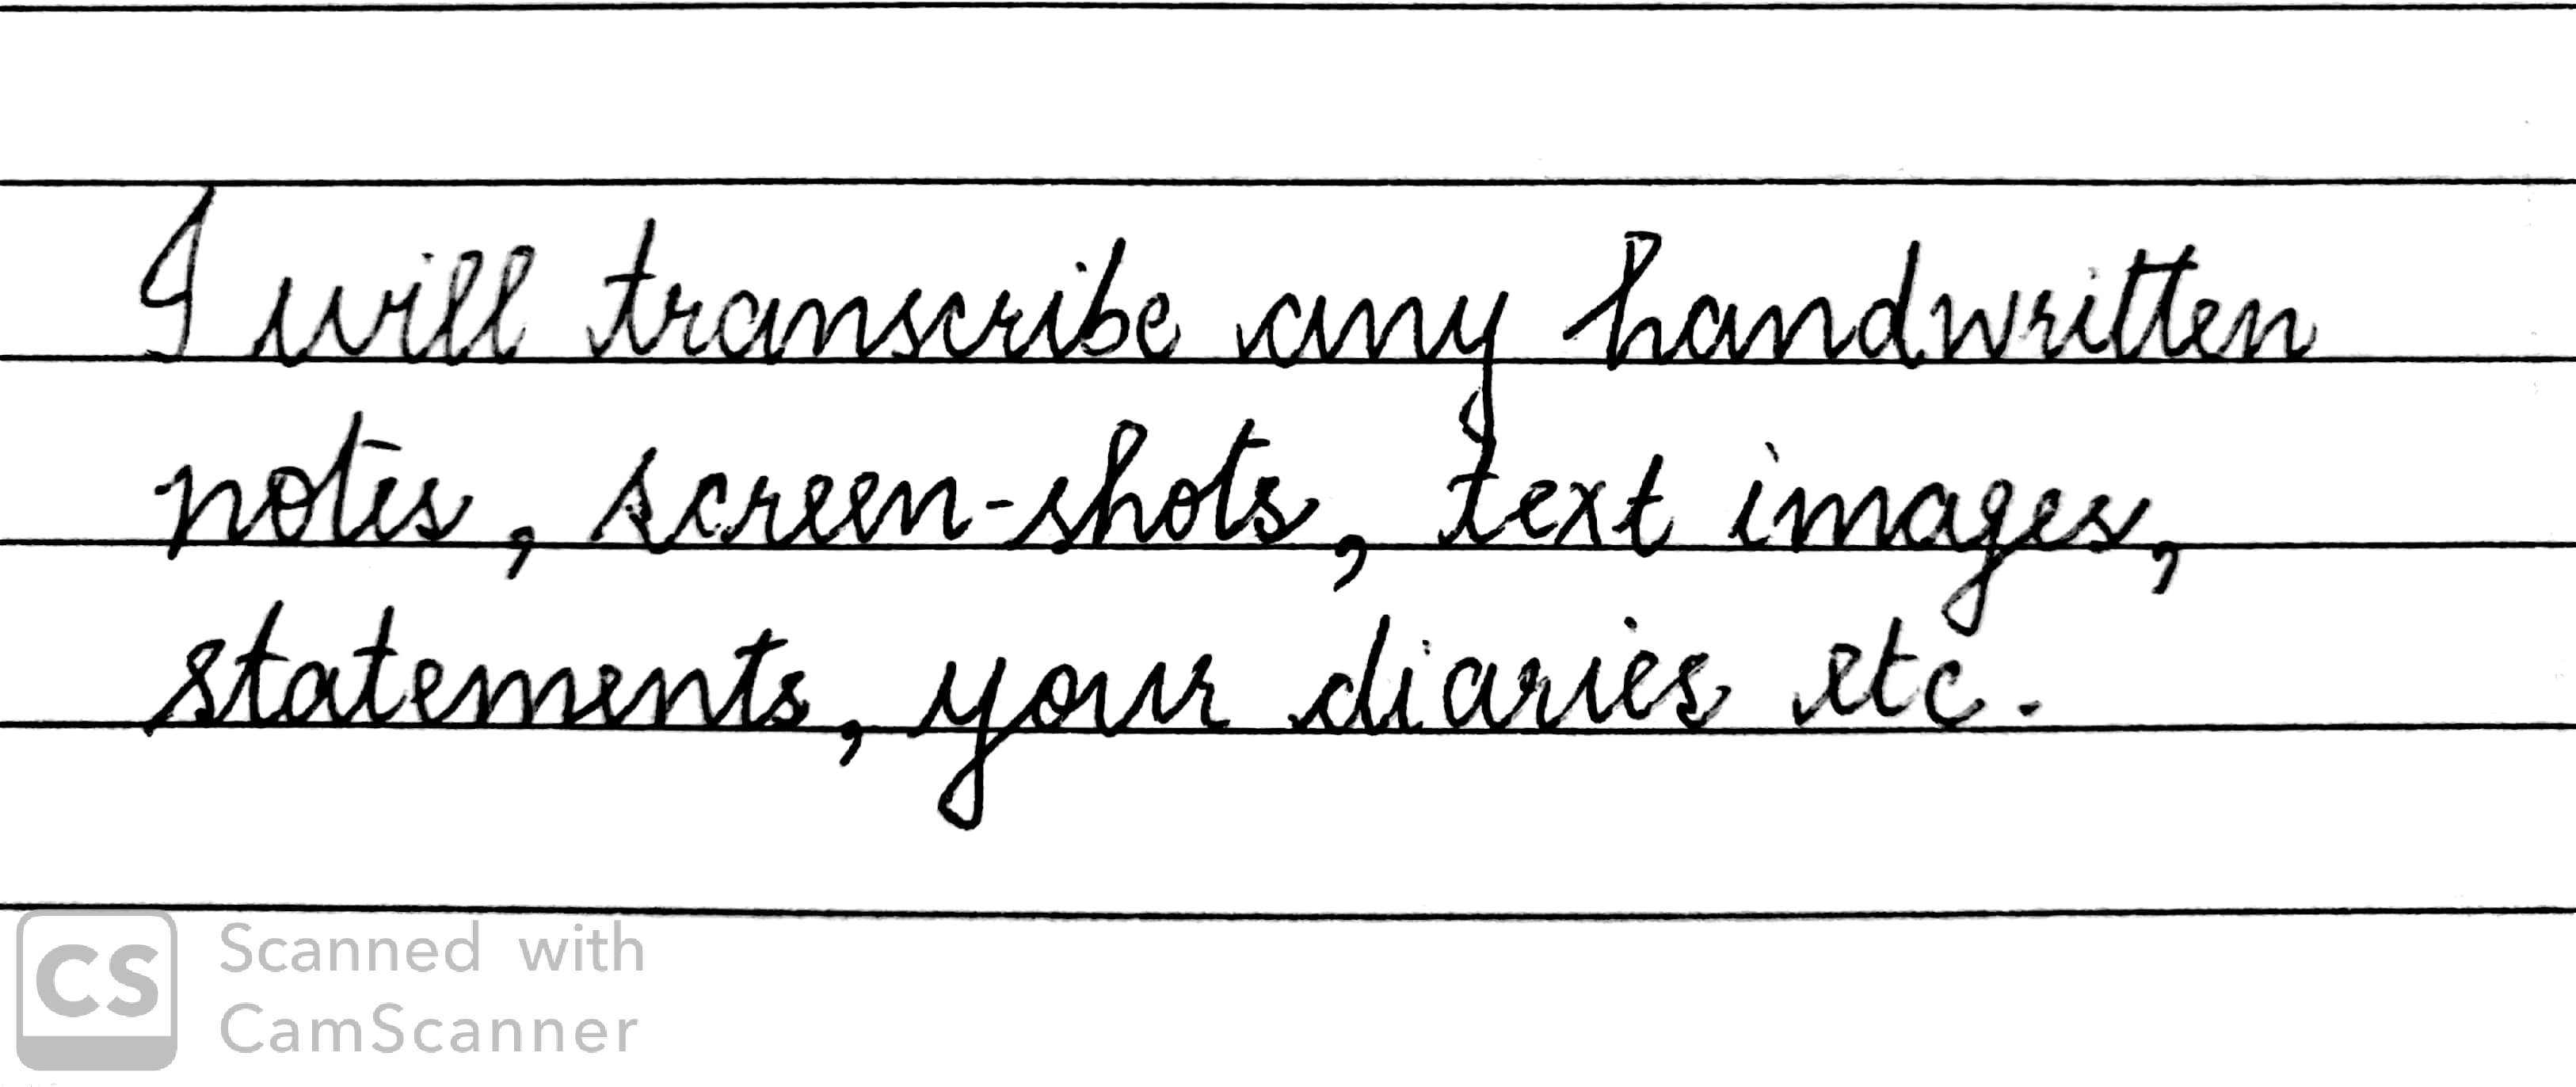 I will transcribe any handwritten
notes, screen-shots, text images,
statements, your diaries etc.
CS
Scanned with
CamScanner